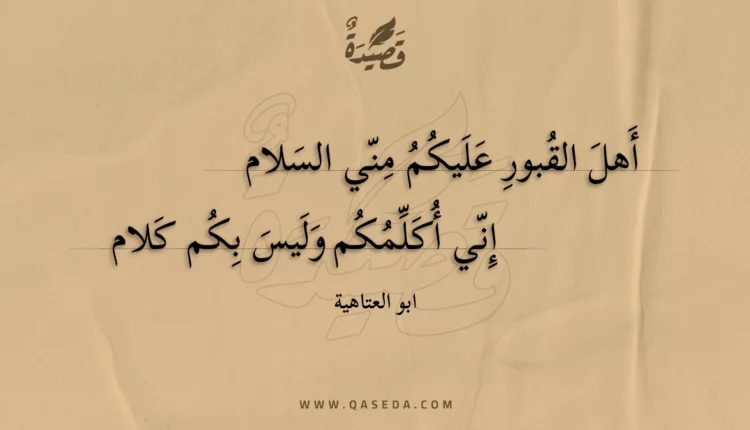 قَصِيدَةٌ
أَهلَ القُبورِ عَلَيكُمُ مِنّي السَلام
إِنّي أُكَلِّمُكُم وَلَيسَ بِكُم كَلام
ابو العتاهية
WWW.QASEDA.COM